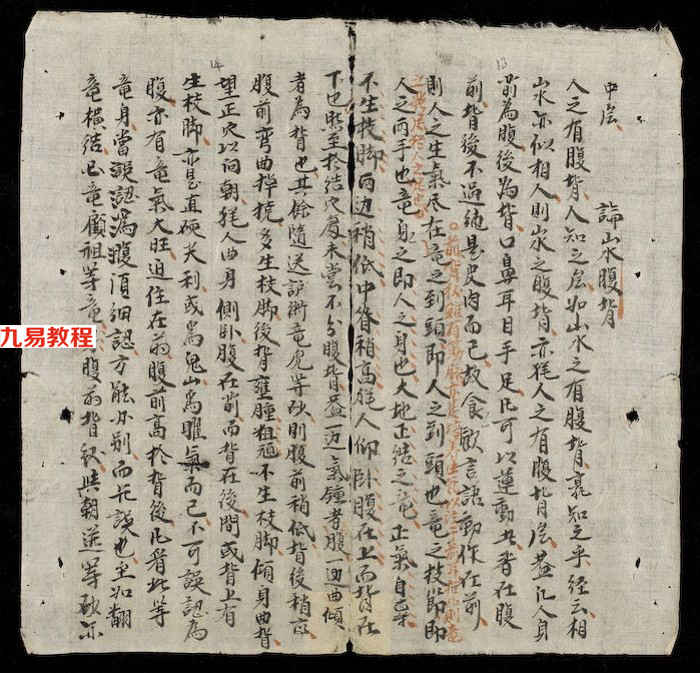 中层
論山水腹背
人之有腹背人知之层如山水之有腹背亮知之乎经云相
山水亦似相人則山水之腹背亦猶人之有腹背层盖凡人身
前為腹後為背口鼻耳目手足凡可以運動者在腹
前背後不過純是皮肉而已故食飲言語動作在前
則人之生氣居在竜之到頭即人之到頭也竜之枝節即
人之两手也竜身之即人之身也大地正結之竜正氣自
不生枝脚两边稍低中脊稍高猶人仰卧腹在上而背在
下也然至於结穴處未嘗不分腹背盖一边氣鐘者腹一边曲傾
者為背也其餘隨送護衛竜虎等砂則腹前稍低背後稍高
腹前弯曲掉撓多生枝脚後背壅腫粗頑不生枝脚傾身曲背
望正穴以向朝猶人曲身側卧腹在前而背在後間或背上有
生枝脚亦是直硬尖利或為鬼山為曜氣而已不可誤認為
腹亦有竜氣大旺迫住在前腹前高於背後凡看此等
竜身當誤認為腹須細認方能分别而無誤也至如翻
竜横結巳竜顧祖等竜腹前背後與朝送等砂亦
九易教程
13
14